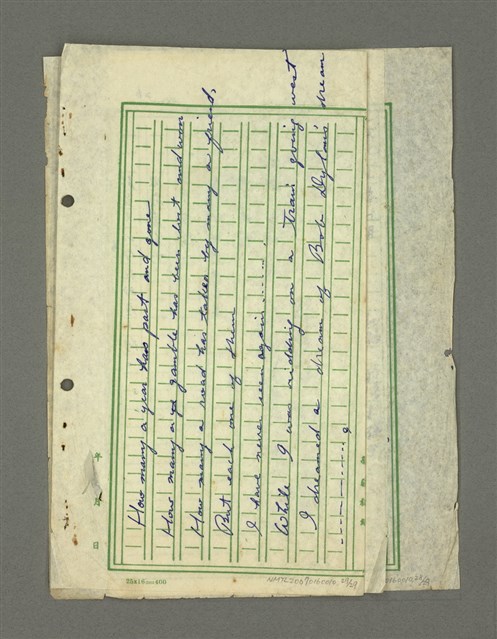 How many a year has past and gone
How many a gamble has been lost and won
How many a road has taken by many a friend,
But each one of them
I have never seen again......
While I was ridding on a train going west
I dreamed a dream of Bob Dylan's dream
..........
年 月 日
25×16=400